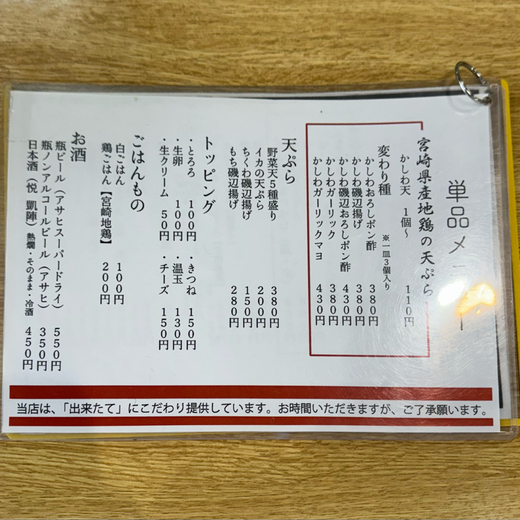 単品メニュー
宮崎県産地鶏の天ぷら
かしわ天 1個〜 110円
変わり種 ※一皿3個入り
かしわおろしポン酢 380円
かしわ磯辺揚げ 380円
かしわ磯辺おろしポン酢 430円
かしわガーリック 380円
かしわガーリックマヨ 430円
天ぷら
野菜天5種盛り 380円
イカの天ぷら 200円
ちくわ磯辺揚げ 150円
もち磯辺揚げ 280円
トッピング
・とろろ 100円 ・きつね 150円
・生卵 100円 ・温玉 130円
・生クリーム 50円 ・チーズ 150円
ごはんもの
白ごはん 100円
鶏ごはん【宮崎地鶏】 200円
お酒
瓶ビール(アサヒスーパードライ) 550円
瓶ノンアルコールビール(アサヒ) 350円
日本酒(悦 凱陣) 熱燗・そのまま・冷酒 450円
当店は、「出来たて」にこだわり提供しています。お時間いただきますが、ご了承願います。